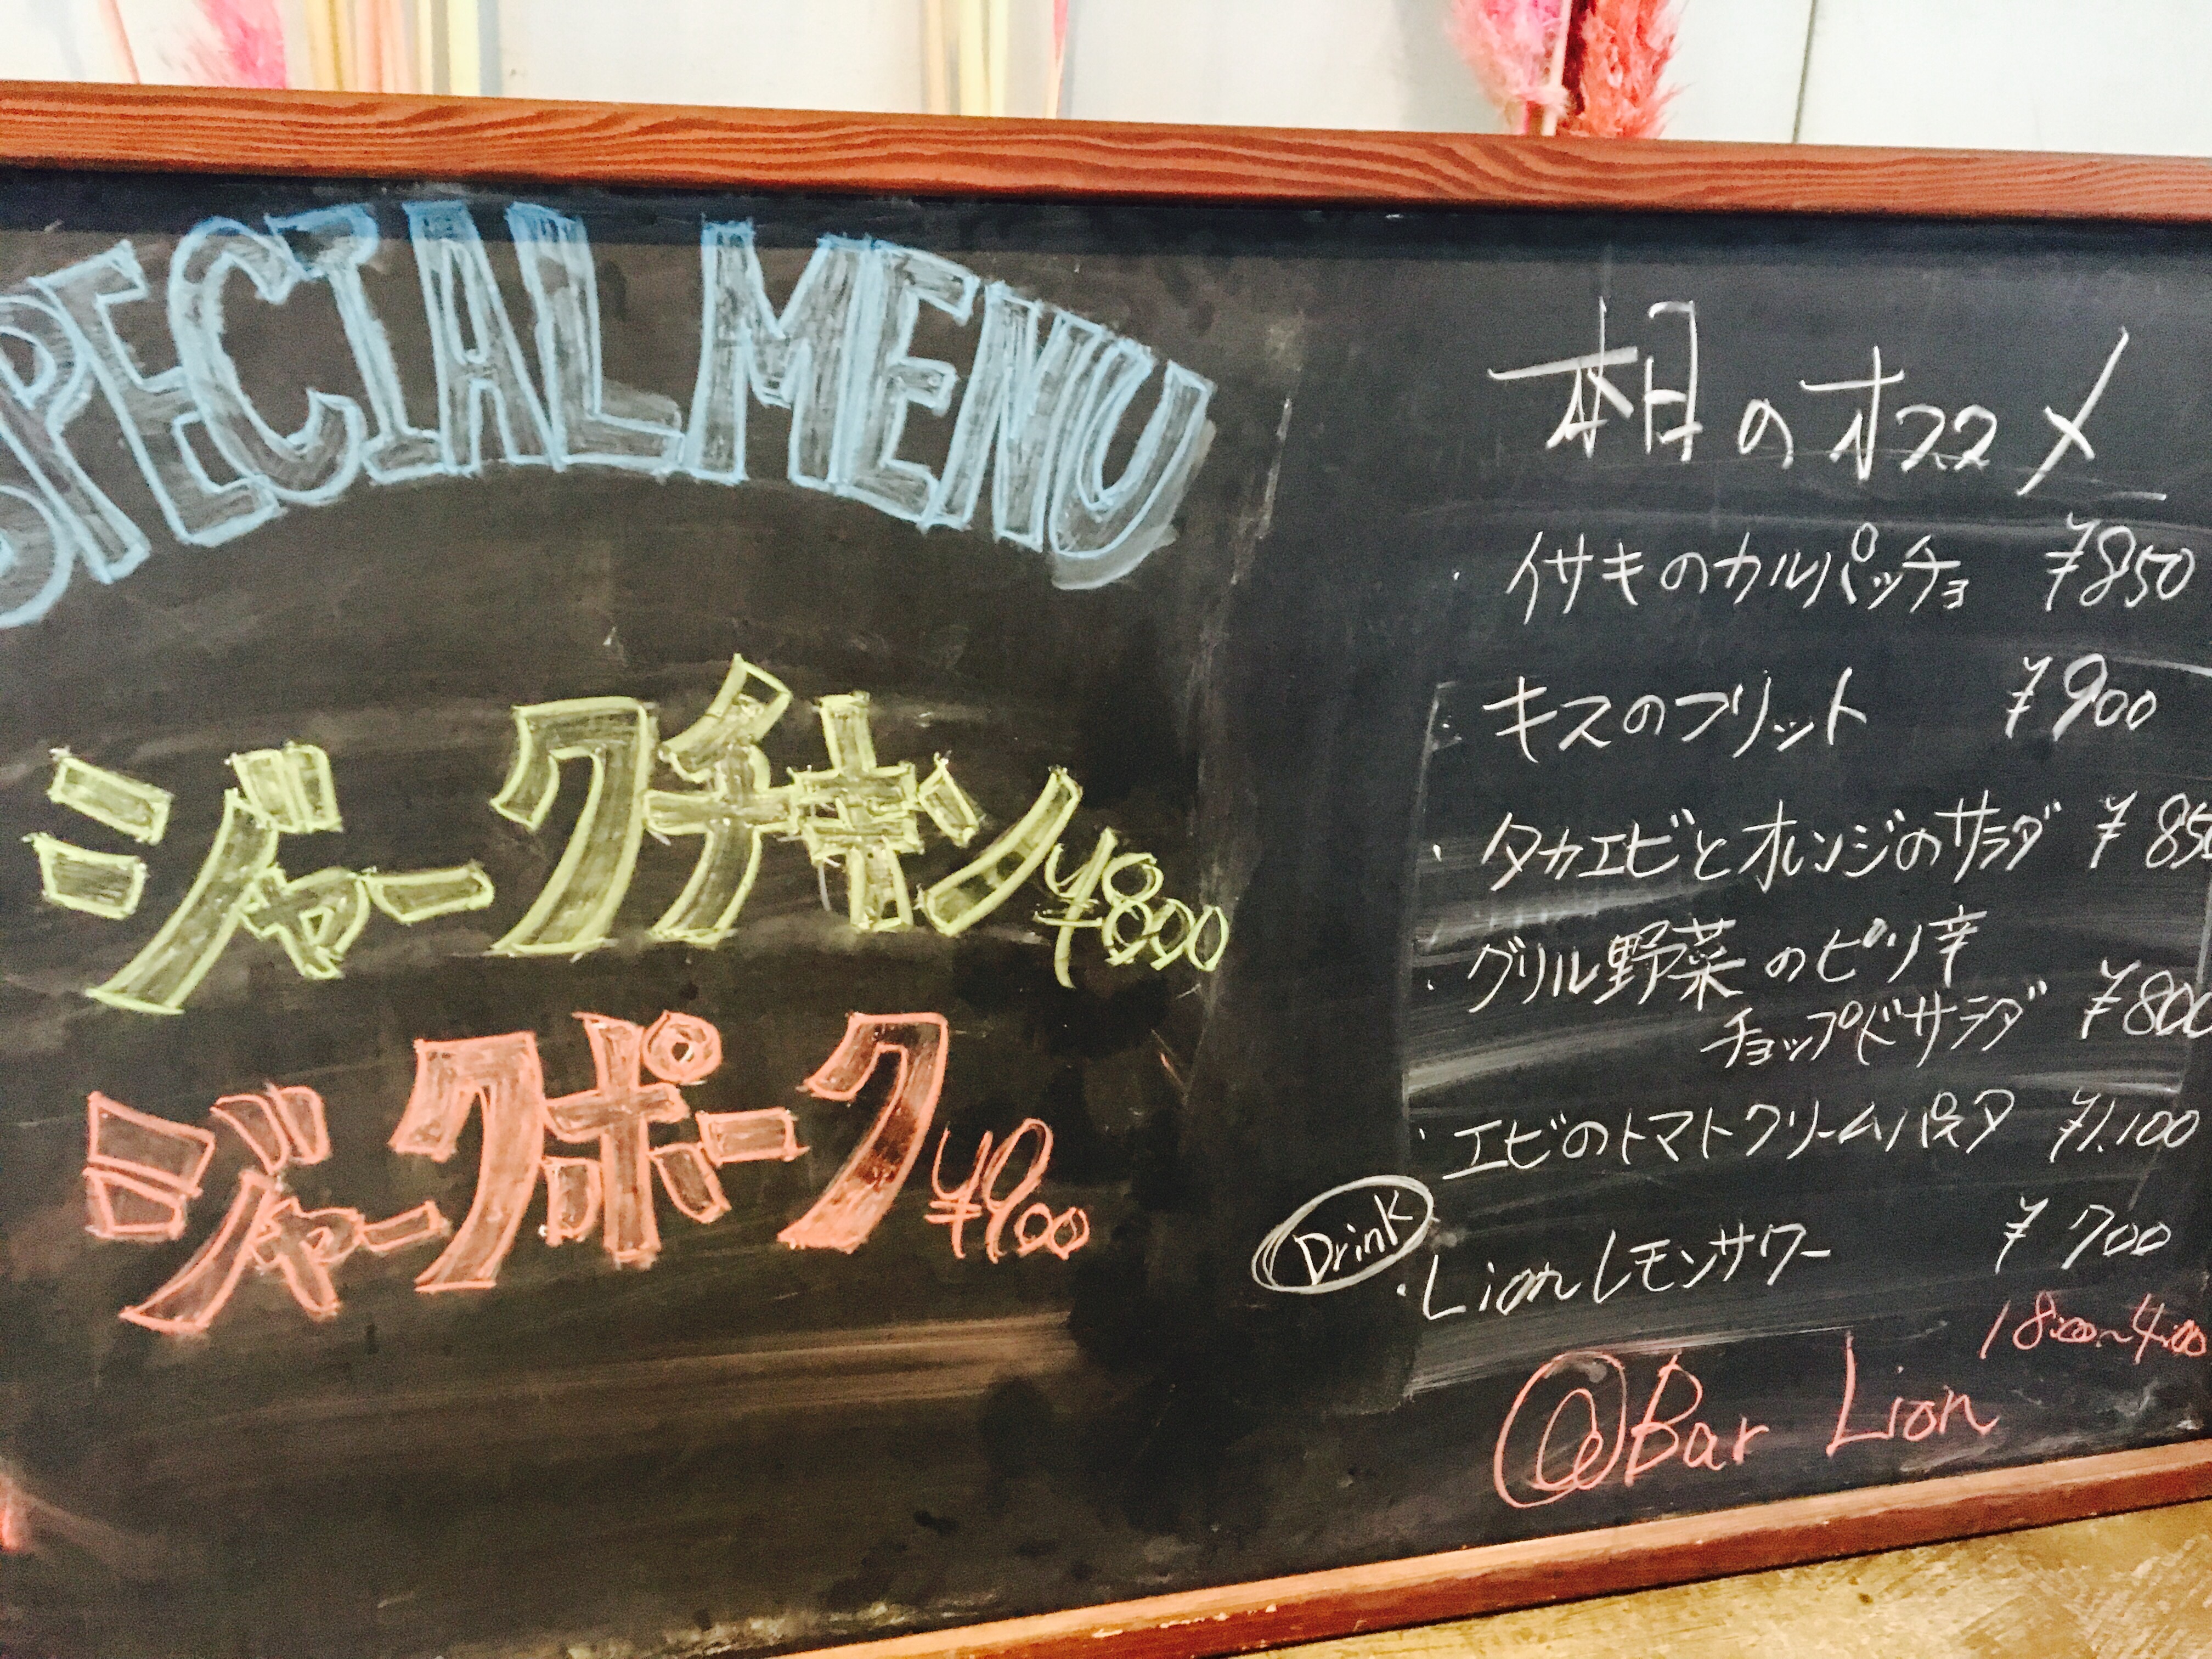 SPECIAL MENU
ジャークチキン ¥800
ジャークポーク ¥900
本日のオススメ
・イサキのカルパッチョ ¥850
・キスのフリット ¥900
・タカエビとオレンジのサラダ ¥850
・グリル野菜のピリ辛
チョップドサラダ ¥800
・エビのトマトクリームパスタ ¥1,100
Drink
・Lionレモンサワー ¥700
18:00~4:00
@Bar Lion